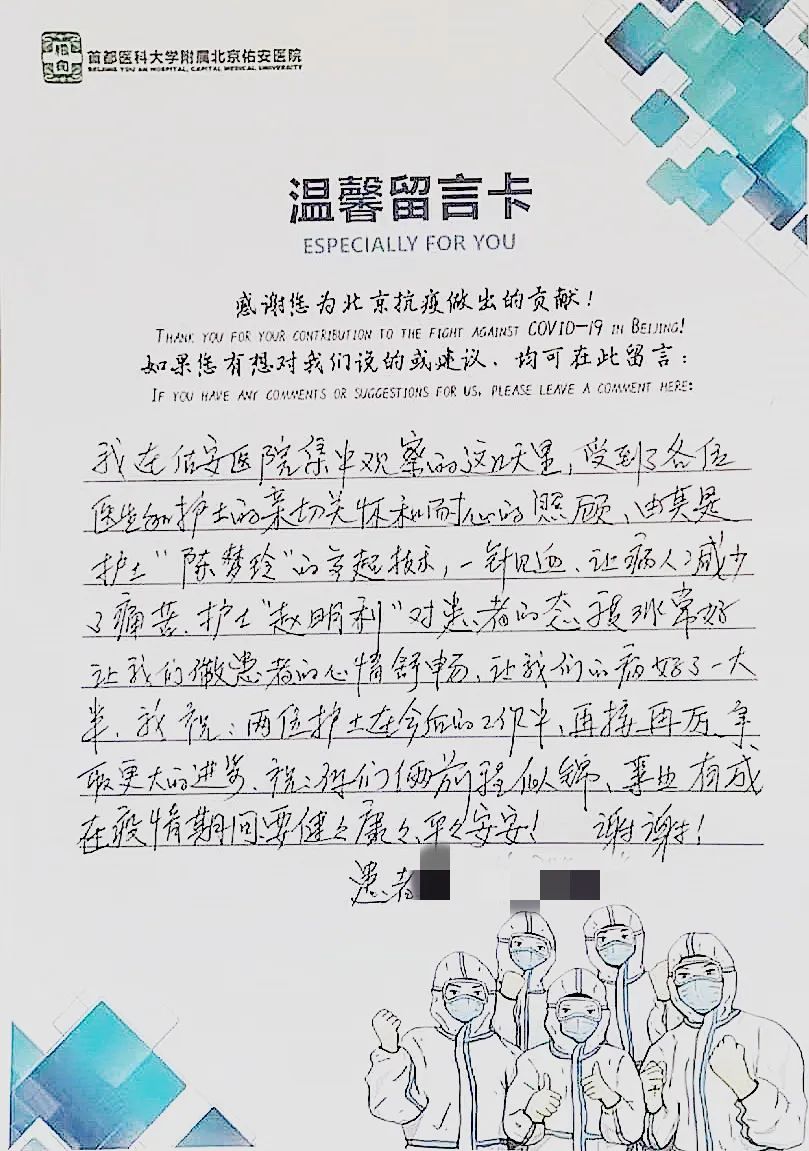 首都医科大学附属北京佑安医院
BEIJING YOU AN HOSPITAL, CAPITAL MEDICAL UNIVERSITY
温馨留言卡
ESPECIALLY FOR YOU
感谢您为北京抗疫做出的贡献！
THANK YOU FOR YOUR CONTRIBUTION TO THE FIGHT AGAINST COVID-19 IN BEIJING!
如果您有想对我们说的或建议，均可在此留言：
IF YOU HAVE ANY COMMENTS OR SUGGESTIONS FOR US, PLEASE LEAVE A COMMENT HERE:
我在佑安医院集中观察的这几天里，受到了各位
医生和护士的亲切关怀和耐心的照顾、由其是
护士“陈梦玲”的高超技术，一针见血、让病人减少
了痛苦、护士“赵明利”对患者的态度非常好
让我们做患者的心情舒畅、让我们的病好了一大
半、我祝：两位护士在今后的工作中、再接再厉、争
取更大的进步、祝：你们俩前程似锦、事业有成
在疫情期间要健々康々、平々安安！ 谢谢！
患者